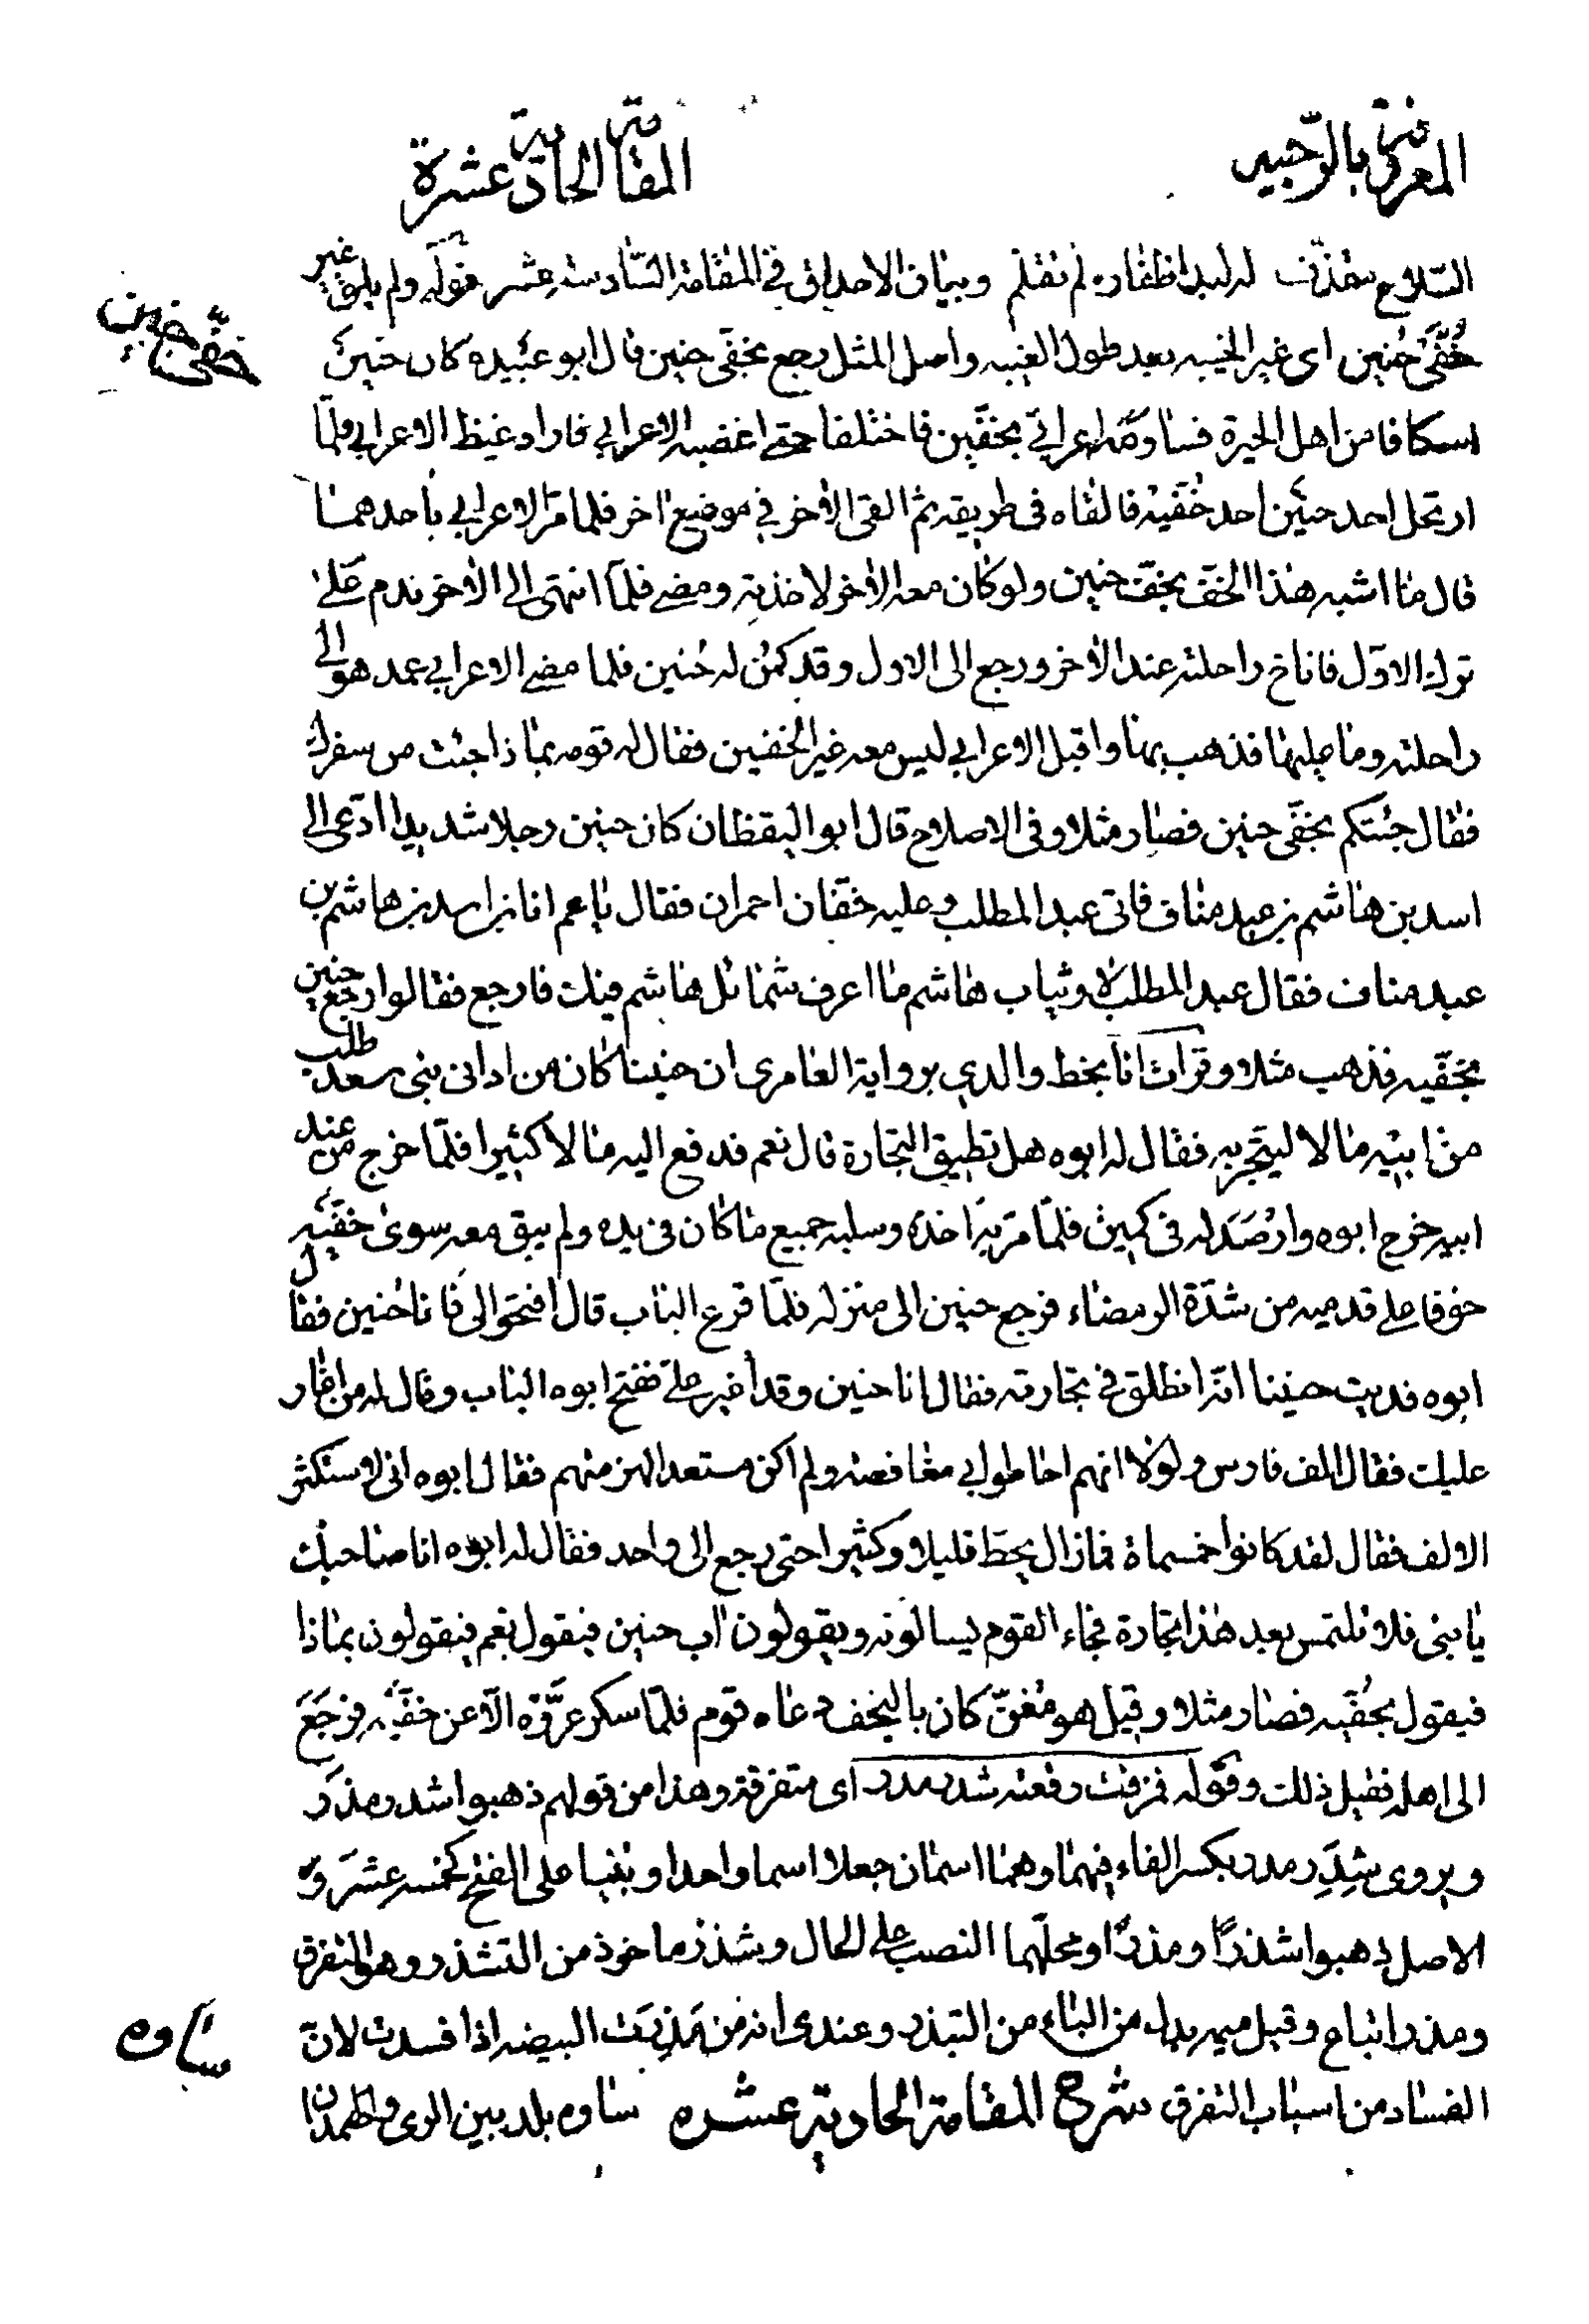 المعروفة بالرحبية
المقامة الحادية عشرة
السلاح مقذف له لبد اظفاره لم تقلم وبيان الاحداق في المقامة السّادسة عشر قوله ولم يلق غير
خفّي حنين
خُفَّى حُنين اى غير الخيبه بعد طول الغيبه واصل المثل رجع بخفّى حنين قال ابو عبيده كان حنين
اسكافا من اهل الحيرة فساومه اعرابيّ بخفّين فاختلفا حتى اغضبه الاعرابي فاراد غيظ الاعرابي فلمّا
ارتحل اخذ حنين احد خُفّيه فالقاه فى طريقه ثم القى الاخر في موضع اخر فلما مرّ الاعرابي باحدهما
قال ما اشبه هذا الخفّ بخفّ حنين ولو كان معه الاخر لاخذته ومضى فلمّا انتهى الى الاخر ندم على
ترك الاوّل فاناخ راحلته عند الاخر ورجع الى الاول وقد كمن له حُنين فلما مضى الاعرابي عمد هو الى
راحلته وما عليها فذهب بها واقبل الاعرابي ليس معه غير الخفين فقال له قومه بماذا جئت من سفرك
فقال جئتكم بخفّى حنين فصار مثلا وفى الاصلاح قال ابو اليقظان كان حنين رجلا شديدا ادّعى الى
اسد بن هاشم بن عبد مناف فاتى عبد المطلب وعليه خفّان احمران فقال يا عم انا بن اسد بن هاشم بن
عبد مناف فقال عبد المطلب لا وثياب هاشم ما اعرف شمائل هاشم فيك فارجع فقالوا رجع حنين
بخفّيه فذهب مثلا وقرات انا بخط والدي برواية العامرى ان حنينا كان من ادانى بنى سعد طلب
من ابيه مالا ليتّجر به فقال له ابوه هل تطيق التجارة قال نعم فدفع اليه مالا كثيرا فلمّا خرج من عند
ابيه خرج ابوه وارْصَدَ له فى كمين فلمّا مرّ به اخذه وسلبه جميع ما كان فى يده ولم يبق معه سوى خفّيه
خوفا على قدميه من شدّة الرمضاء فرجع حنين الى منزله فلمّا قرع الباب قال افتحوا لى فانا حُنين فقال
ابوه فديت حنينا انّه انطلق في تجارته فقال انا حنين وقد اُغير علىّ ففتح ابوه الباب وقال له من اغار
عليك فقال الف فارس ولولا انهم احاطوا بي مغافصة ولم اكن مستعدا لهزمتهم فقال ابوه انى لاستكثر
الالف فقال لقد كانوا خمسماة فمازال يحطّ قليلا وكثيرا حتى رجع الى واحد فقال له ابوه انا صاحبك
يا بنى فلا تلتمس بعد هذا تجارة فجاء القوم يسالونه ويقولون اٰب حنين فيقول نعم فيقولون بماذا
فيقول بخُفّيه فصار مثلا وقيل هو مُغنّ كان بالنجف دعاه قوم فلمّا سكر عرَّوْه الّا عن خفّيه فرجَعَ
الى اهله فقيل ذلك وقوله فمزقت رقعته شذر مذر اى متفرقة وهذا من قولهم ذهبوا شذر مذرَ
ويروى شِذَر مذر بكسر الفاء فيهما وهما اسمان جعلا اسما واحدا وبنيا على الفتح كخمسة عشَرَ وَ
الاصل ذهبوا شذرًا ومذرًا ومحلّهما النصب على الحال وشذر ماخوذ من التشذر وهو التفرق
ومذر اتباع وقيل ميمه بدل من الباء من التبذر وعندى انه من مَذِرَت البيضه اذا فسدت لانّ
ساوه
الفساد من اسباب التفرق شرح المقامة الحادية عشره ساوه بلد بين الرى وهمدان